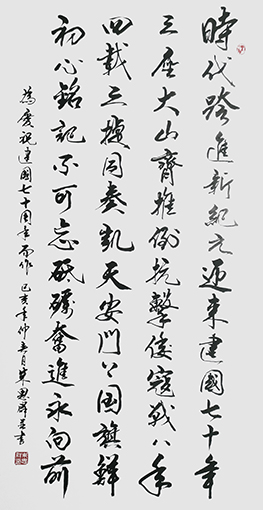 時代跨進新紀元迎來建國七十年
三座大山齊推倒抗擊倭寇戰八年
四載三捷同奏凱天安門上國旗鮮
初心銘記不可忘砥礪奮進永向前
為慶祝建國七十周年而作 己亥年仲春月